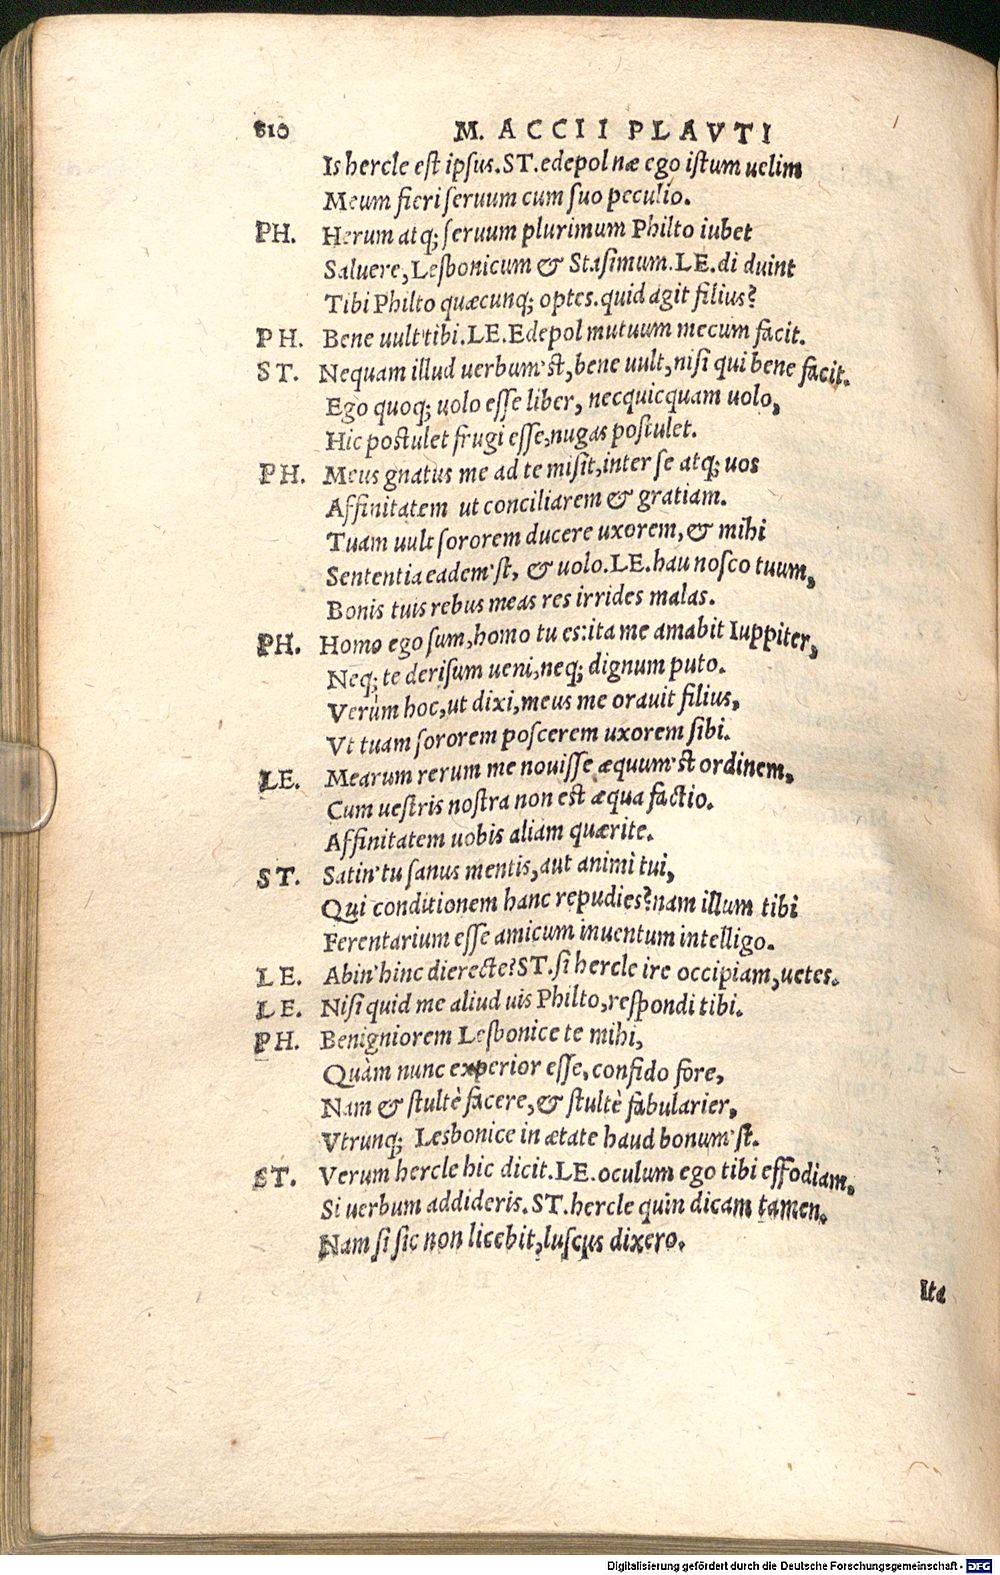 810 M. ACCII PLAVTI
Is hercle est ipsus. ST. edepol næ ego istum uelim
Meum fieri seruum cum suo peculio.
PH. Herum atq; seruum plurimum Philto iubet
Saluere, Lesbonicum & Stasimum. LE. di duint
Tibi Philto quæcunq; optes. quid agit filius?
PH. Bene uult tibi. LE. Edepol mutuum mecum facit.
ST. Nequam illud uerbum'st, bene uult, nisi qui bene facit.
Ego quoq; uolo esse liber, necquicquam uolo,
Hic postulet frugi esse, nugas postulet.
PH. Meus gnatus me ad te misit, inter se atq; uos
Affinitatem ut conciliarem & gratiam.
Tuam uult sororem ducere uxorem, & mihi
Sententia eadem'st, & uolo. LE. hau nosco tuum,
Bonis tuis rebus meas res irrides malas.
PH. Homo ego sum, homo tu es: ita me amabit Iuppiter,
Neq; te derisum ueni, neq; dignum puto.
Verùm hoc, ut dixi, meus me orauit filius,
Vt tuam sororem poscerem uxorem sibi.
LE. Mearum rerum me nouisse æquum'st ordinem,
Cum uestris nostra non est æqua factio.
Affinitatem uobis aliam quærite.
ST. Satin' tu sanus mentis, aut animi tui,
Qui conditionem hanc repudies? nam illum tibi
Ferentarium esse amicum inuentum intelligo.
LE. Abin' hinc dierecte? ST. si hercle ire occipiam, uetes.
LE. Nisi quid me aliud uis Philto, respondi tibi.
PH. Benigniorem Lesbonice te mihi,
Quàm nunc experior esse, confido fore,
Nam & stultè facere, & stultè fabularier,
Vtrunq; Lesbonice in ætate haud bonum'st.
ST. Verum hercle hic dicit. LE. oculum ego tibi effodiam,
Si uerbum addideris. ST. hercle quin dicam tamen.
Nam si sic non licebit, luscus dixero.
Ita
Digitalisierung gefördert durch die Deutsche Forschungsgemeinschaft - DFG